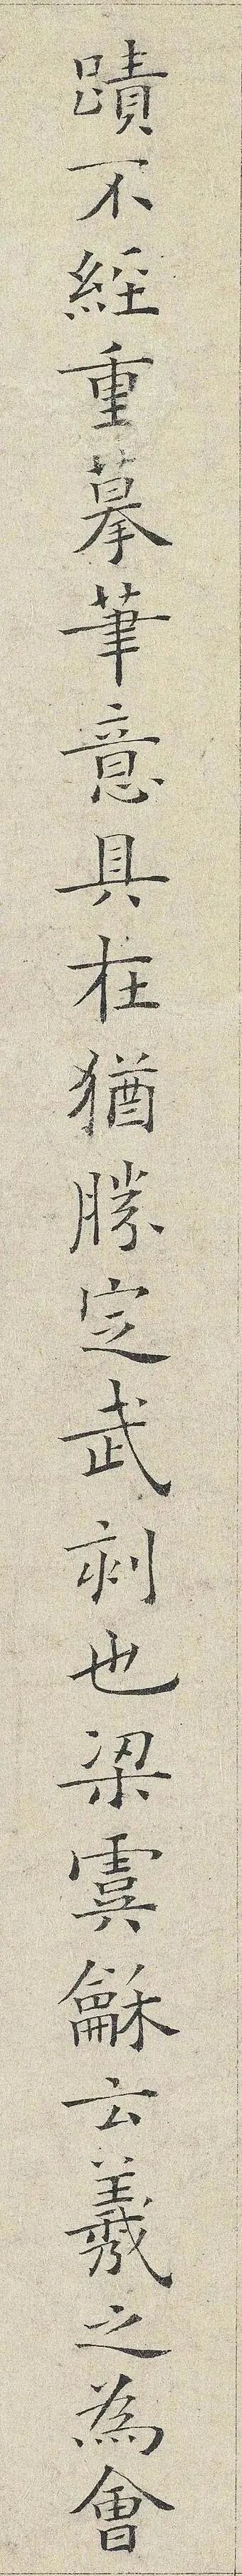 蹟不經重摹筆意具在猶勝定武刻也梁虞龢云羲之為會